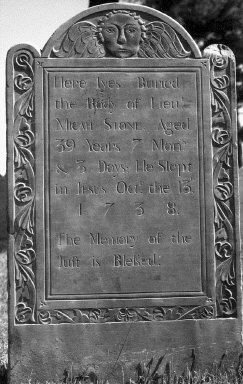 Here Lyes Buried
the Body of Lieut
Micah Stone. Aged
39 Years 7 Monts
& 3 Days. He Slept
in Jesus Octr the 13.
1 7 3 8.
The Memory of the
Just is Blessed.